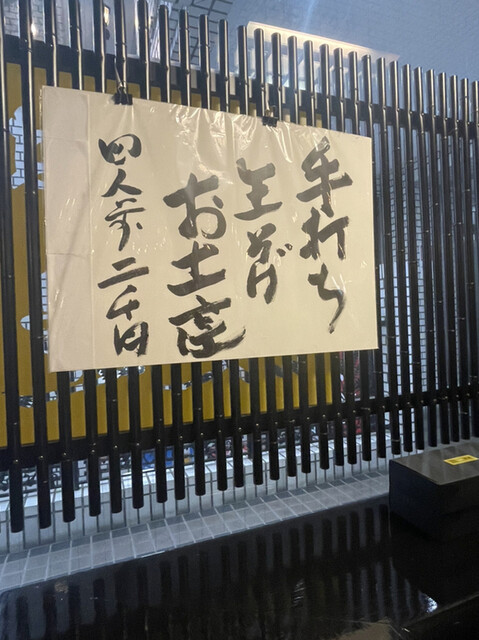 手打ち
生そば
お土産
四人前 二千円